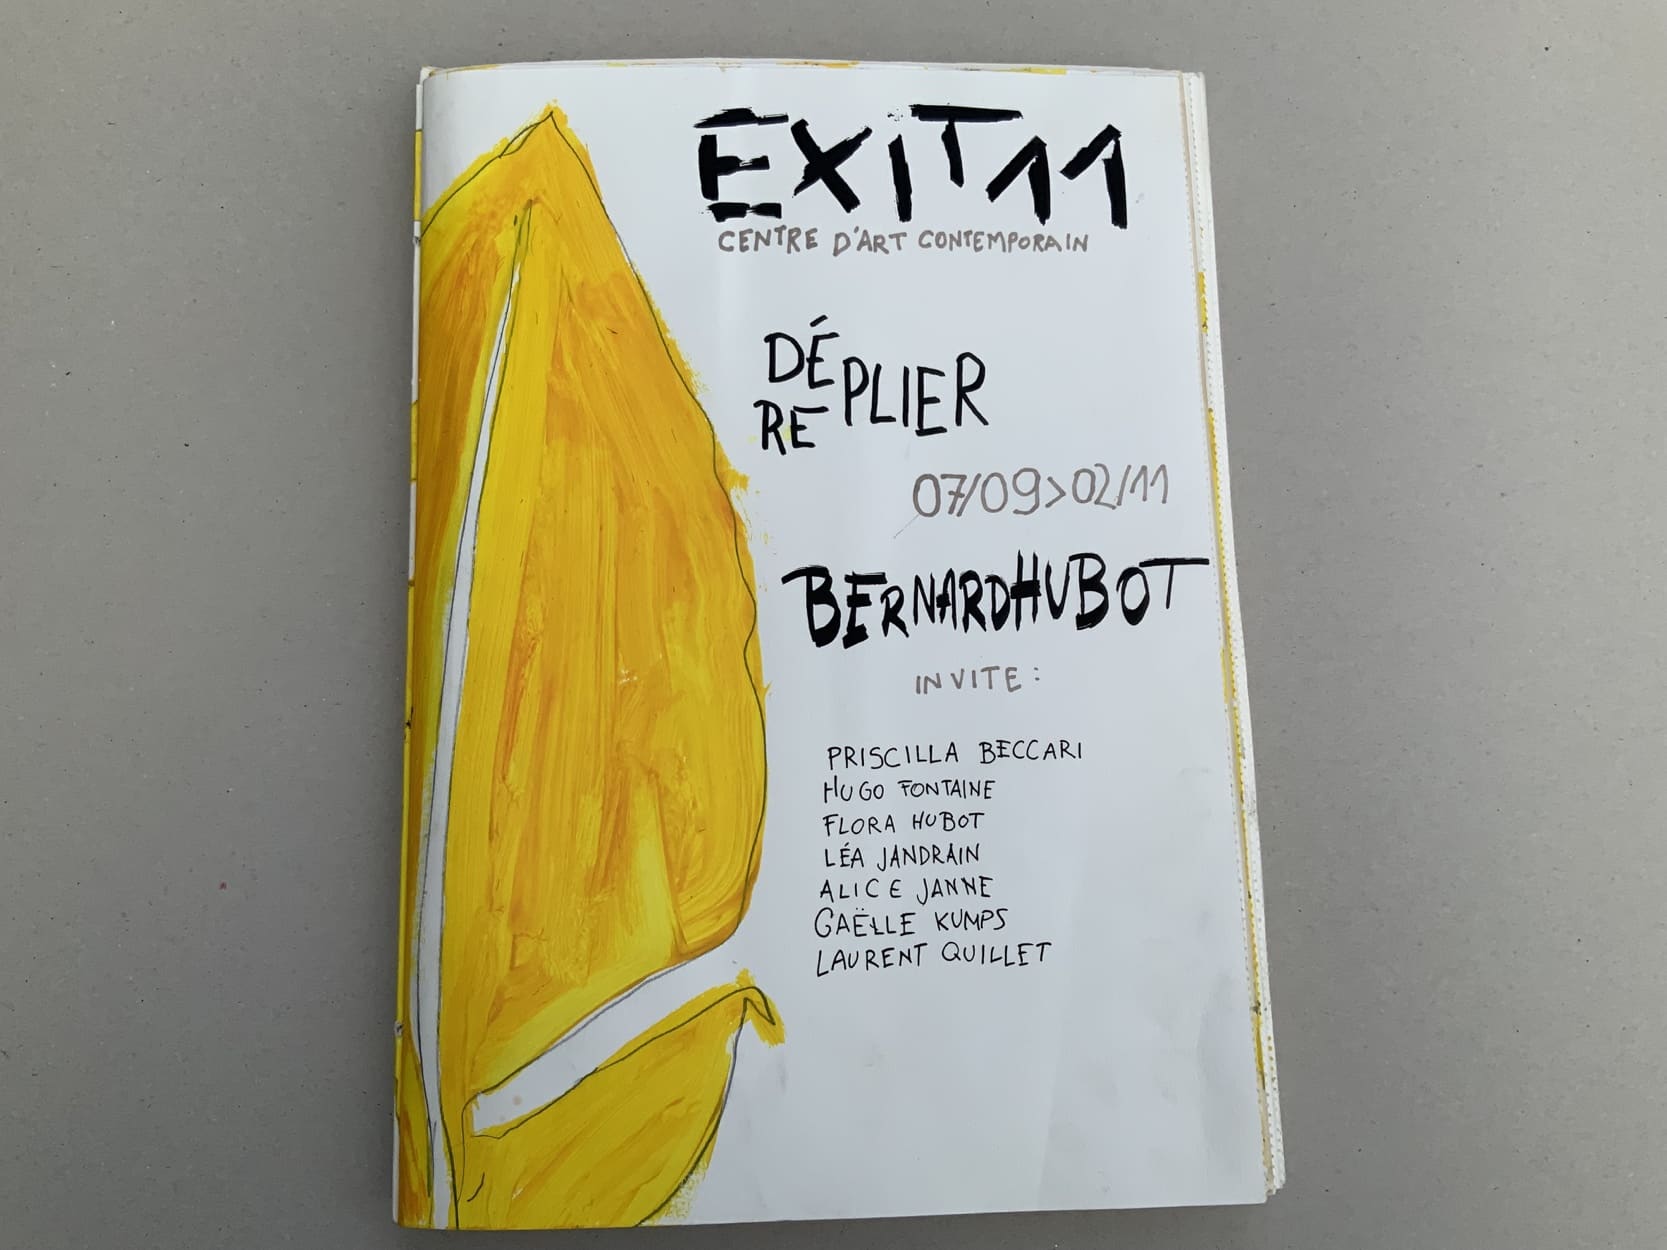 EXIT11
CENTRE D'ART CONTEMPORAIN
DÉ
RE PLIER
07/09>02/11
BERNARDHUBOT
INVITE :
PRISCILLA BECCARI
HUGO FONTAINE
FLORA HUBOT
LÉA JANDRAIN
ALICE JANNE
GAËLLE KUMPS
LAURENT QUILLET